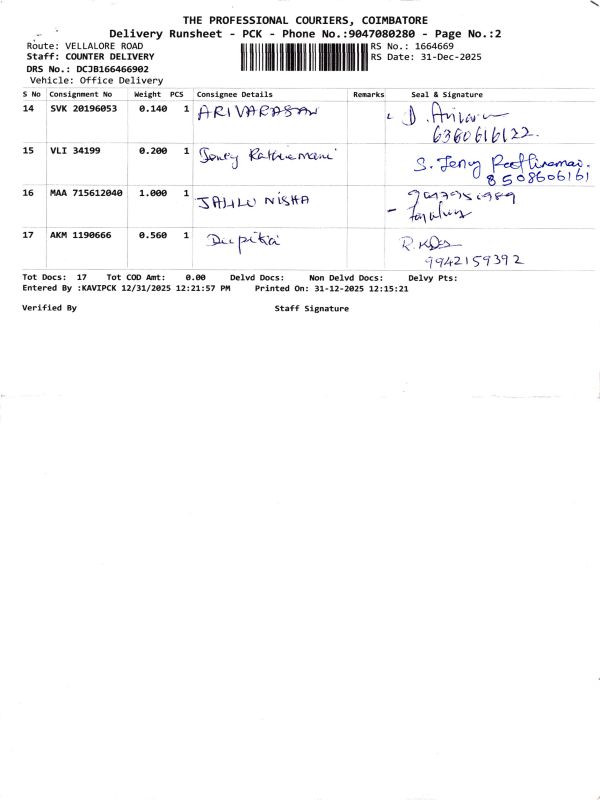 THE PROFESSIONAL COURIERS, COIMBATORE
Delivery Runsheet - PCK - Phone No.:9047080280 - Page No.:2
Route: VELLALORE ROAD
RS No.: 1664669
Staff: COUNTER DELIVERY
RS Date: 31-Dec-2025
DRS No.: DCJB166466902
Vehicle: Office Delivery
S No Consignment No Weight PCS Consignee Details Remarks Seal & Signature
14 SVK 20196053 0.140 1 ARIVARASAN D.
6360616122.
15 VLI 34199 0.200 1 Jency Rathinamani S. Jency
8508606161
16 MAA 715612040 1.000 1 NISHA
17 AKM 1190666 0.560 1 Deepika R.
9942159392
Tot Docs: 17 Tot COD Amt: 0.00 Delvd Docs: Non Delvd Docs: Delvy Pts:
Entered By :KAVIPCK 12/31/2025 12:21:57 PM Printed On: 31-12-2025 12:15:21
Verified By Staff Signature